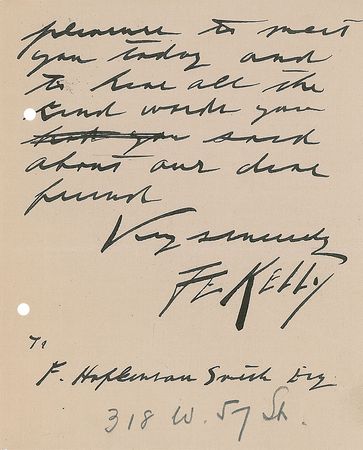 pleasure to meet
you today and
to hear all the
kind words you
said
about our dear
friend
Very sincerely
F E Kelly
To
F. Hopkinson Smith Esq
318 W. 57 St.